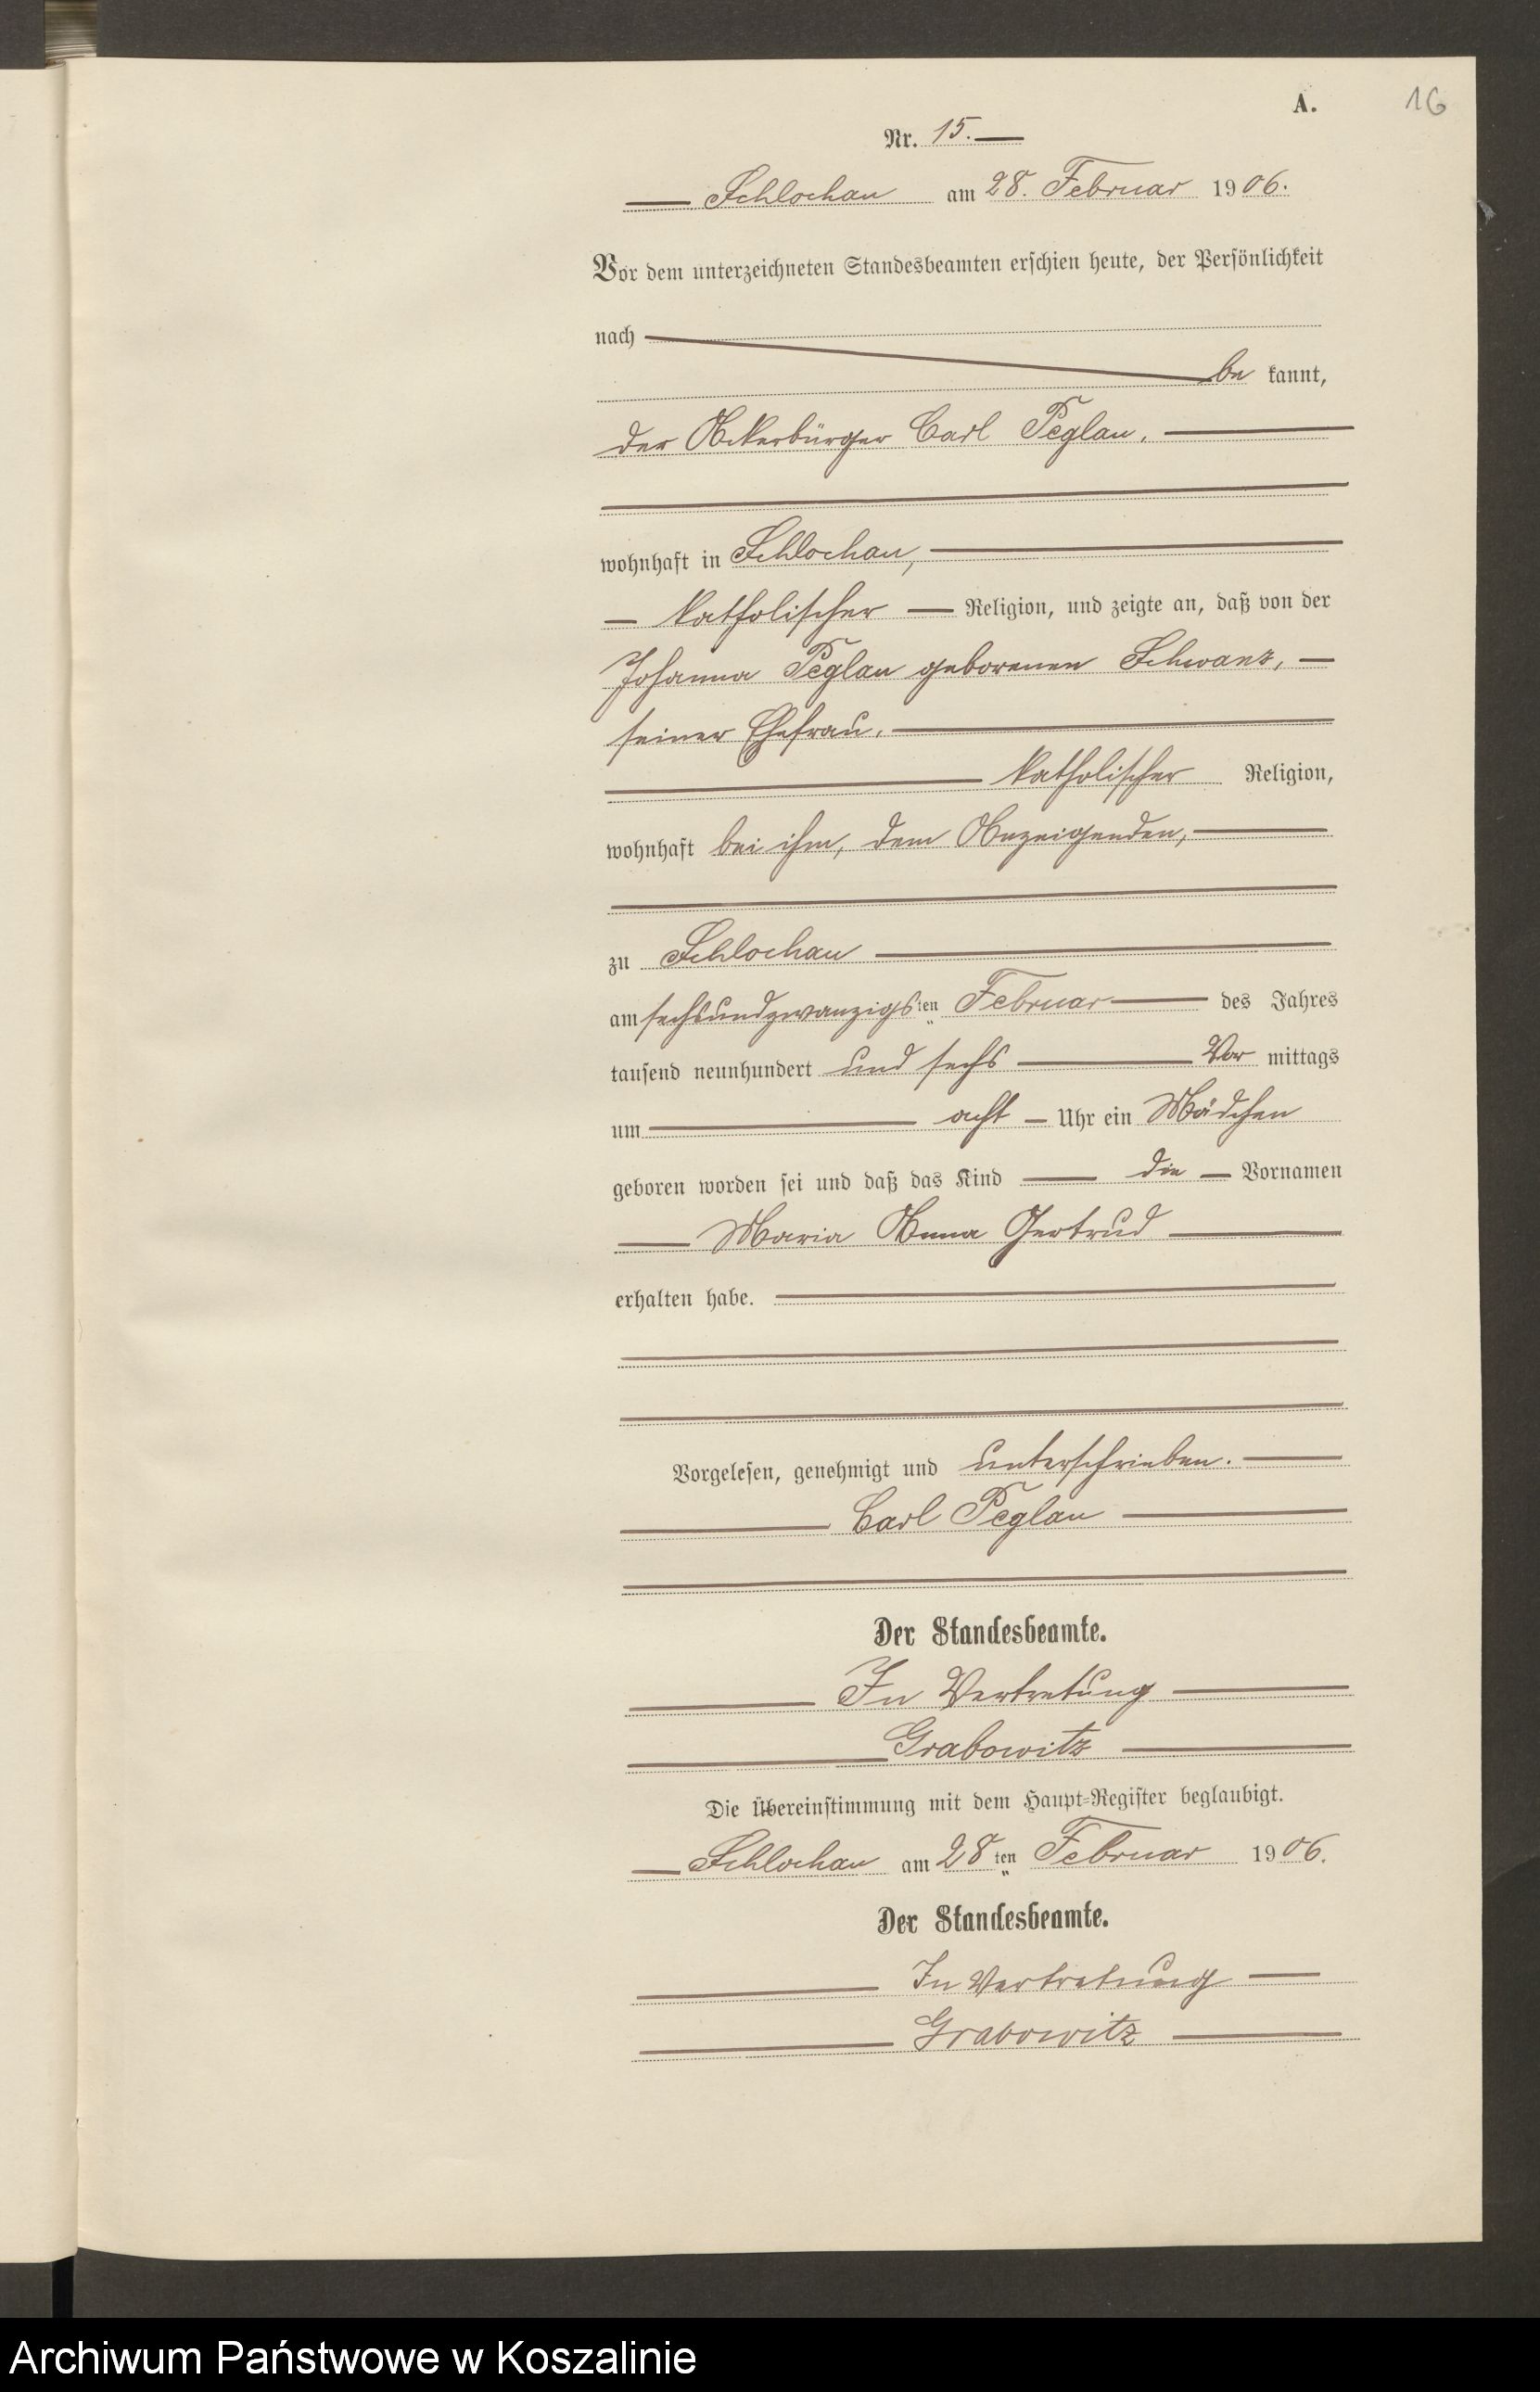 A.
16
Nr. 15.
Schlochau am 28. Februar 1906.
Vor dem unterzeichneten Standesbeamten erschien heute, der Persönlichkeit
nach
be kannt,
der Ackerbürger Carl Peglau,
wohnhaft in Schlochau,
katholischer Religion, und zeigte an, daß von der
Johanna Peglau geborenen Schwanz,
seiner Ehefrau,
katholischer Religion,
wohnhaft bei ihm, dem Anzeigenden,
zu Schlochau
am sechsundzwanzigsten Februar des Jahres
tausend neunhundert und sechs Vor mittags
um acht Uhr ein Mädchen
geboren worden sei und daß das Kind die Vornamen
Maria Anna Gertrud
erhalten habe.
Vorgelesen, genehmigt und unterschrieben.
Carl Peglau
Der Standesbeamte.
In Vertretung
Grabowitz
Die Übereinstimmung mit dem Haupt-Register beglaubigt.
Schlochau am 28ten Februar 1906.
Der Standesbeamte.
In Vertretung
Grabowitz
Archiwum Państwowe w Koszalinie